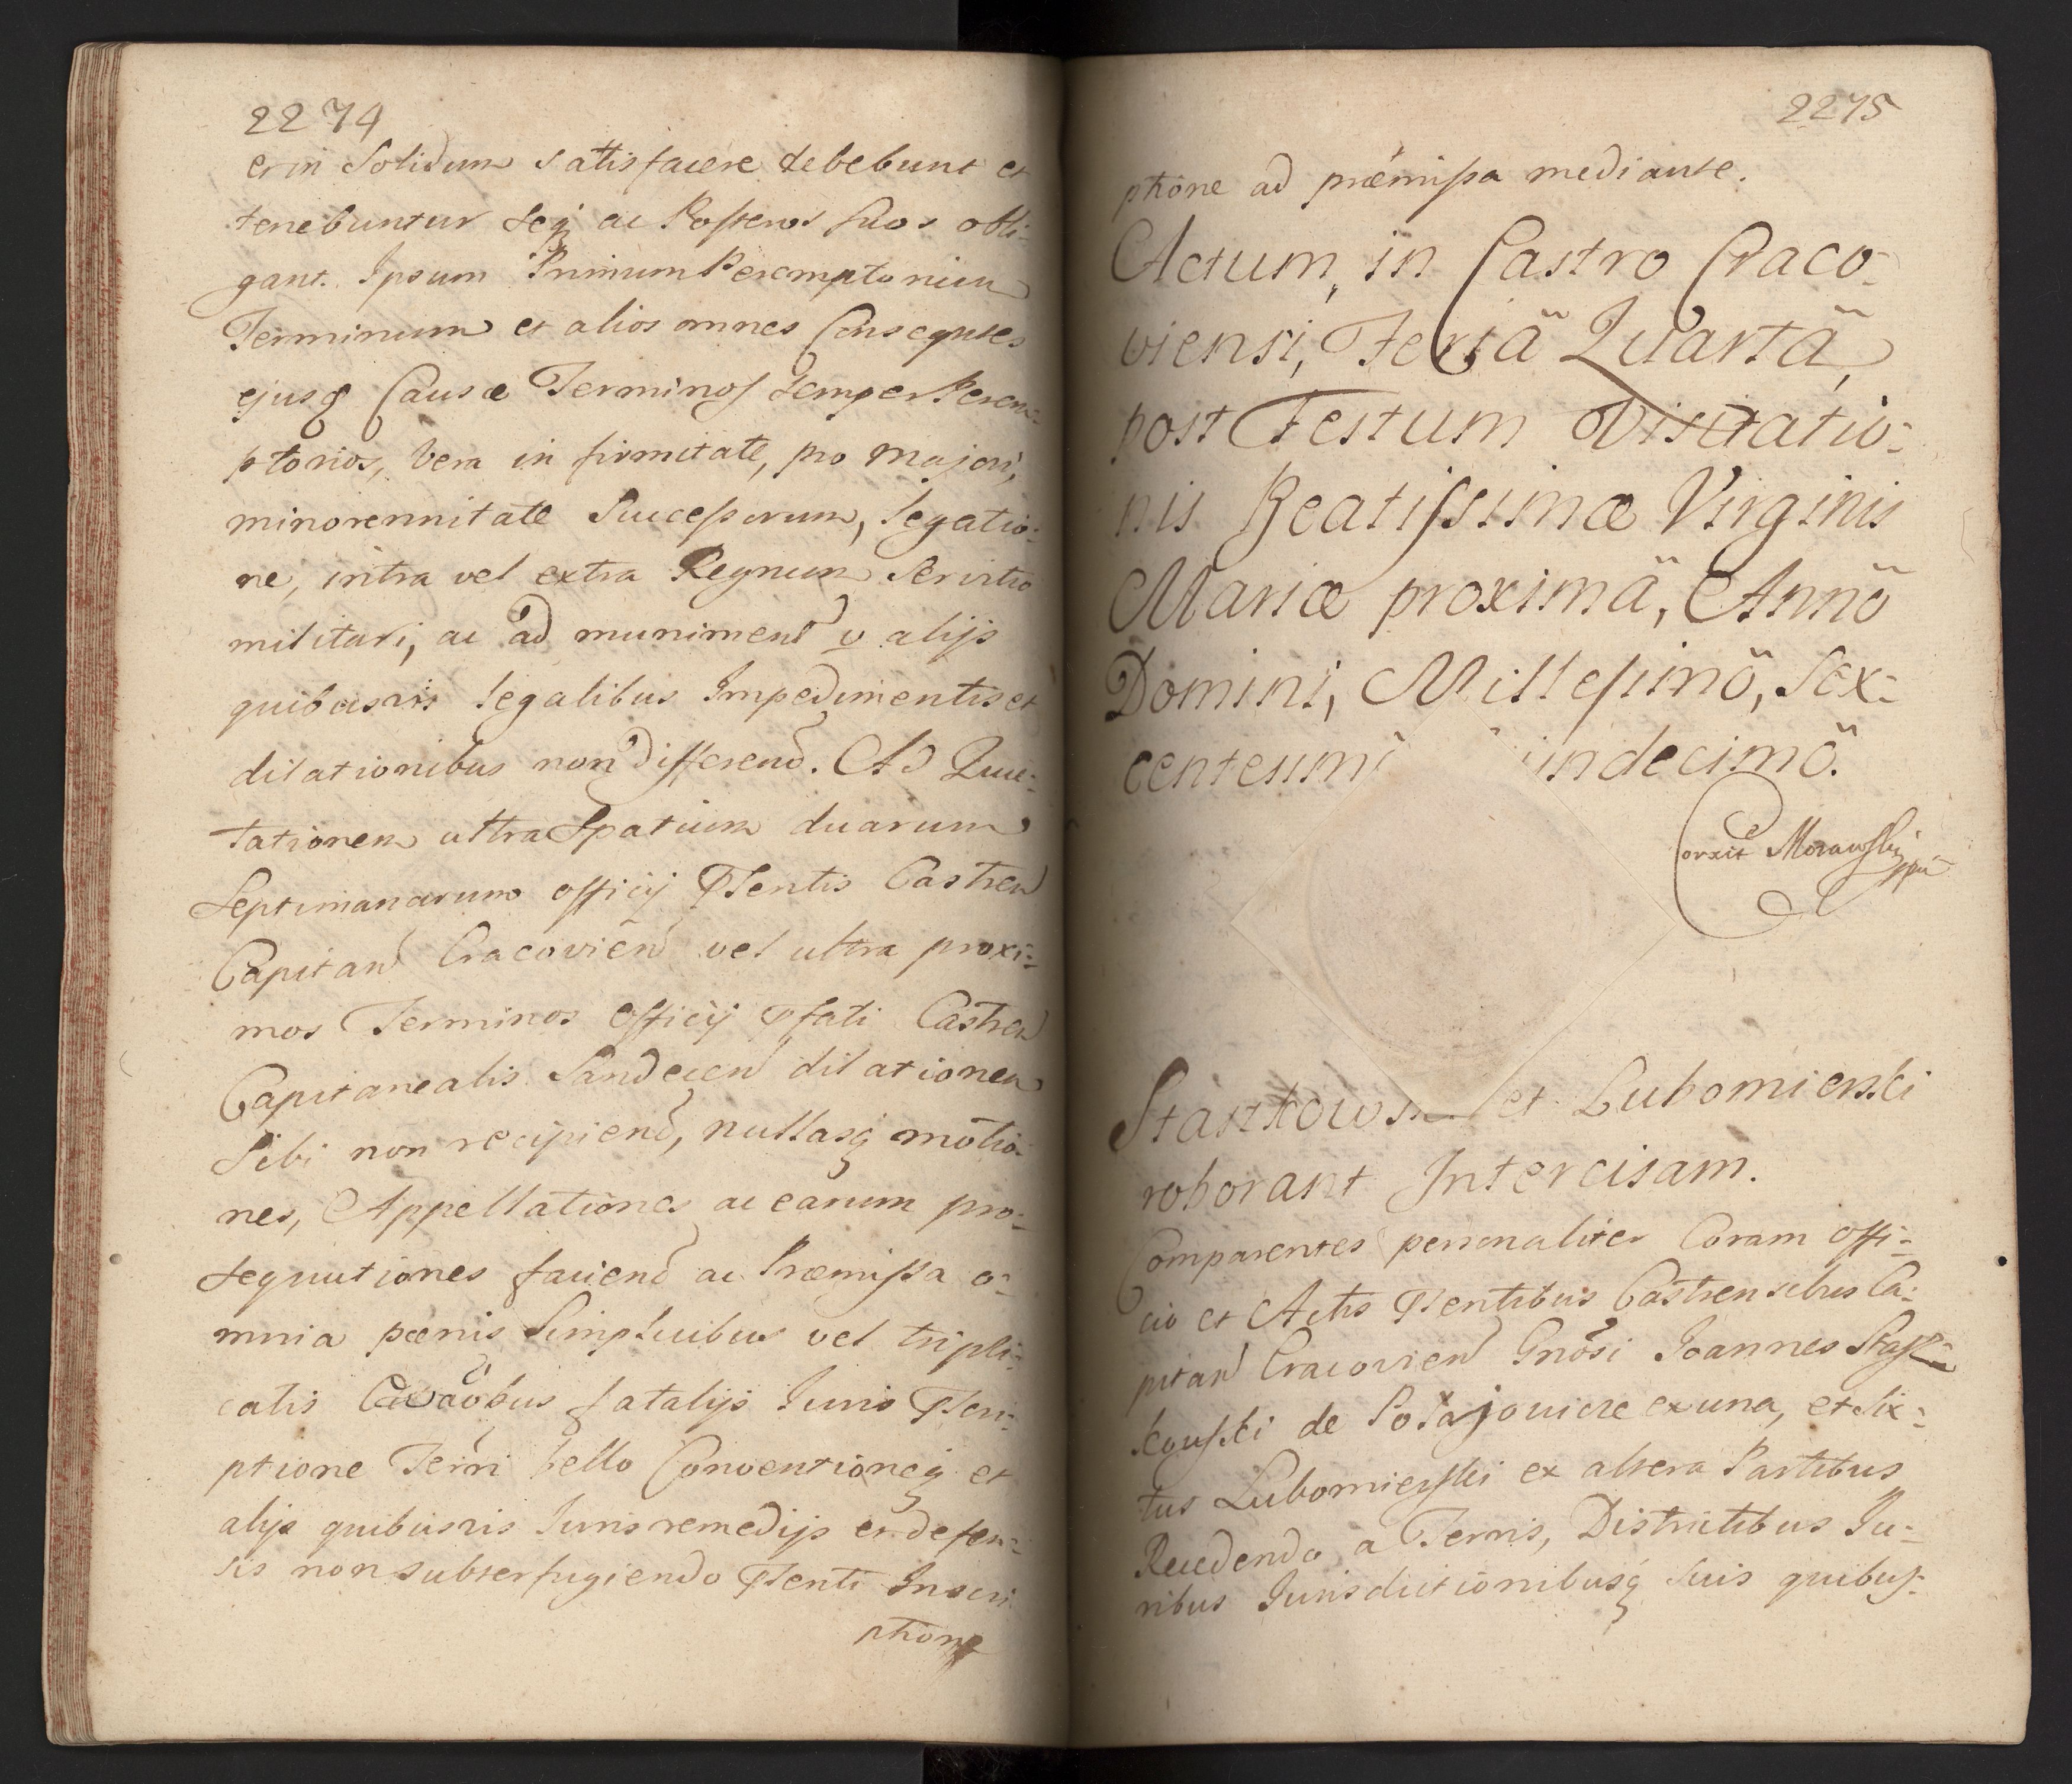 2274
et in Solidum satisfacere debebunt et
tenebuntur seq ac Posteros suos obli-
gant. Ipsum Primum Peremptorium
Terminum et alios omnes Conseqntes
ejusq Causæ Terminos semper Perem-
ptorios, vera infirmitate, pro majori,
minorennitate Successorum, legatio-
ne, intra vel extra Regnum Servitio
militari, ac ad muniment v alijs
quibusvis legalibus Impedimentis et
dilationibus non differend. Ad Quie-
tationem ultra Spatium duarum
Septimanarum officij Psentis Castren
Capitan Cracovien vel ultra proxi-
mos Terminos officij Pfati Castren
Capitanealis Sandecen dilationem
Sibi non recipiend, nullasq motio-
nes, Appellationes ac earum pro-
sequutiones faciend ac Præmissa o-
mnia pœnis Simplicibus vel tripli-
catis fatalijs Juris Pscri-
ptione Terri bello Conventioneq et
alijs quibusvis Juris remedijs et defen-
sis non subterfugiendo Psenti Inscri
ptione
2275
ptione ad præmissa mediante.
Actum, in Castro Craco-
viensi, Feria Quarta,
post Festum Visitatio-
nis Beatissimæ Virginis
Mariæ proximã, Annõ
Domini, Millesimõ, Sex-
centesim indecimõ.
Corxit Morawski
mpp
Staszkows et Lubomierski
roborant Intercisam.
Comparentes personaliter Coram Offi-
cio et Actis Psentibus Castrensibus Ca-
pitan Cracovien Gnosi Joannes Stasz-
kowski de ex una, et Six-
tus Lubomierski ex altera Partibus
Recedendo a Terris, Districtibus Ju-
ribus Jurisdictionibusq suis quibus-